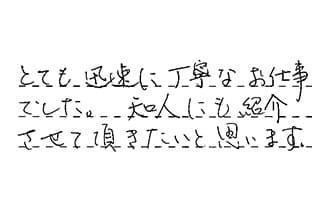 とても迅速に丁寧なお仕事
でした。知人にも紹介
させて頂きたいと思います。